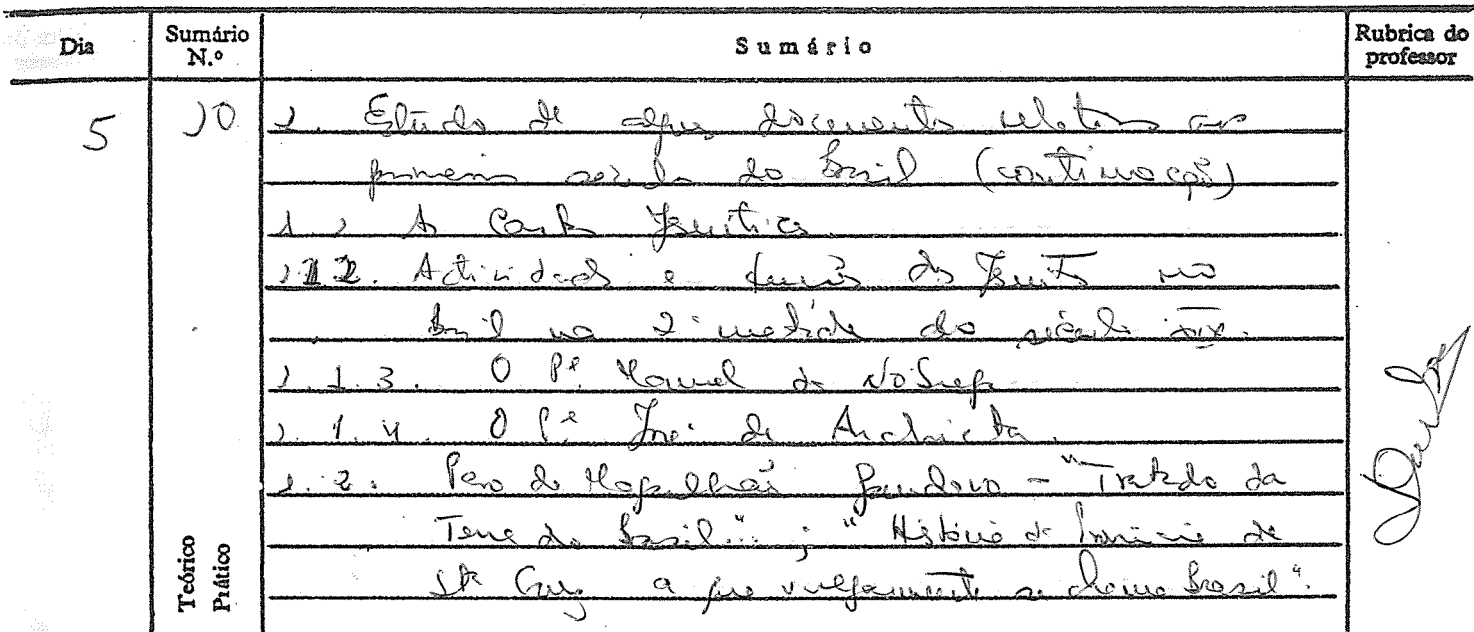 Dia
Sumário N.º
Sumário
Rubrica do professor
5
10
1. Estudo de alguns documentos relativos ao
primeiro século do Brasil (continuação)
1. 1 As Cartas Jesuíticas
1.1.2. Actividade e dos Jesuítas no
Brasil na 2ª metade do século XIX.
1.1.3. O Pe. Manuel da Nóbrega
1.1.4. O Pe. José de Anchieta.
1.2. Pero de Magalhães Gandavo - "Tratado da
Terra do Brasil"; "História da Província de
Sta Cruz a que vulgarmente se chama Brasil".
Teórico
Prático